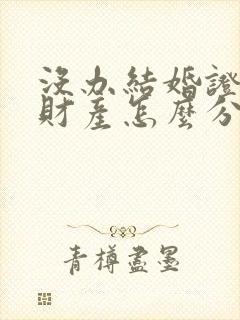 没办結婚證
財產怎麼分
青樽盡墨